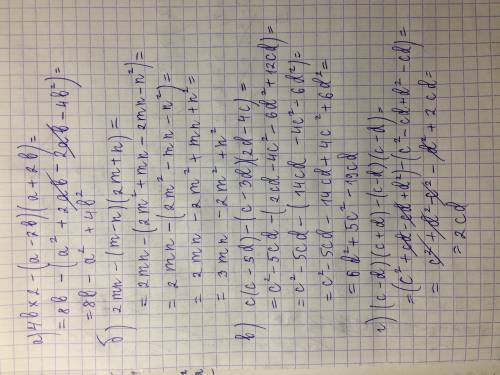 а) 4b×2-(a-2b)(a+2b)=
=8b-(a²+2ab-2ab-4b²)=
=8b-a²+4b²
б) 2mn-(m-n)(2m+n)=
=2mn-(2m²+mn-2mn-n²)=
=2mn-(2m²-mn-n²)=
=2mn-2m²+mn+n²=
=3mn-2m²+n²
в) c(c-5d)-(c-3d)(2d-4c)=
=c²-5cd-(2cd-4c²-6d²+12cd)=
=c²-5cd-(14cd-4c²-6d²)=
=c²-5cd-14cd+4c²+6d²=
=6d²+5c²-19cd
г) (c-d)(c+d)-(c-d)(c-d)=
=(c²+cd-cd+d²)-(c²-cd+d²-cd)=
=c²+d²-c²-d²+2cd=
=2cd